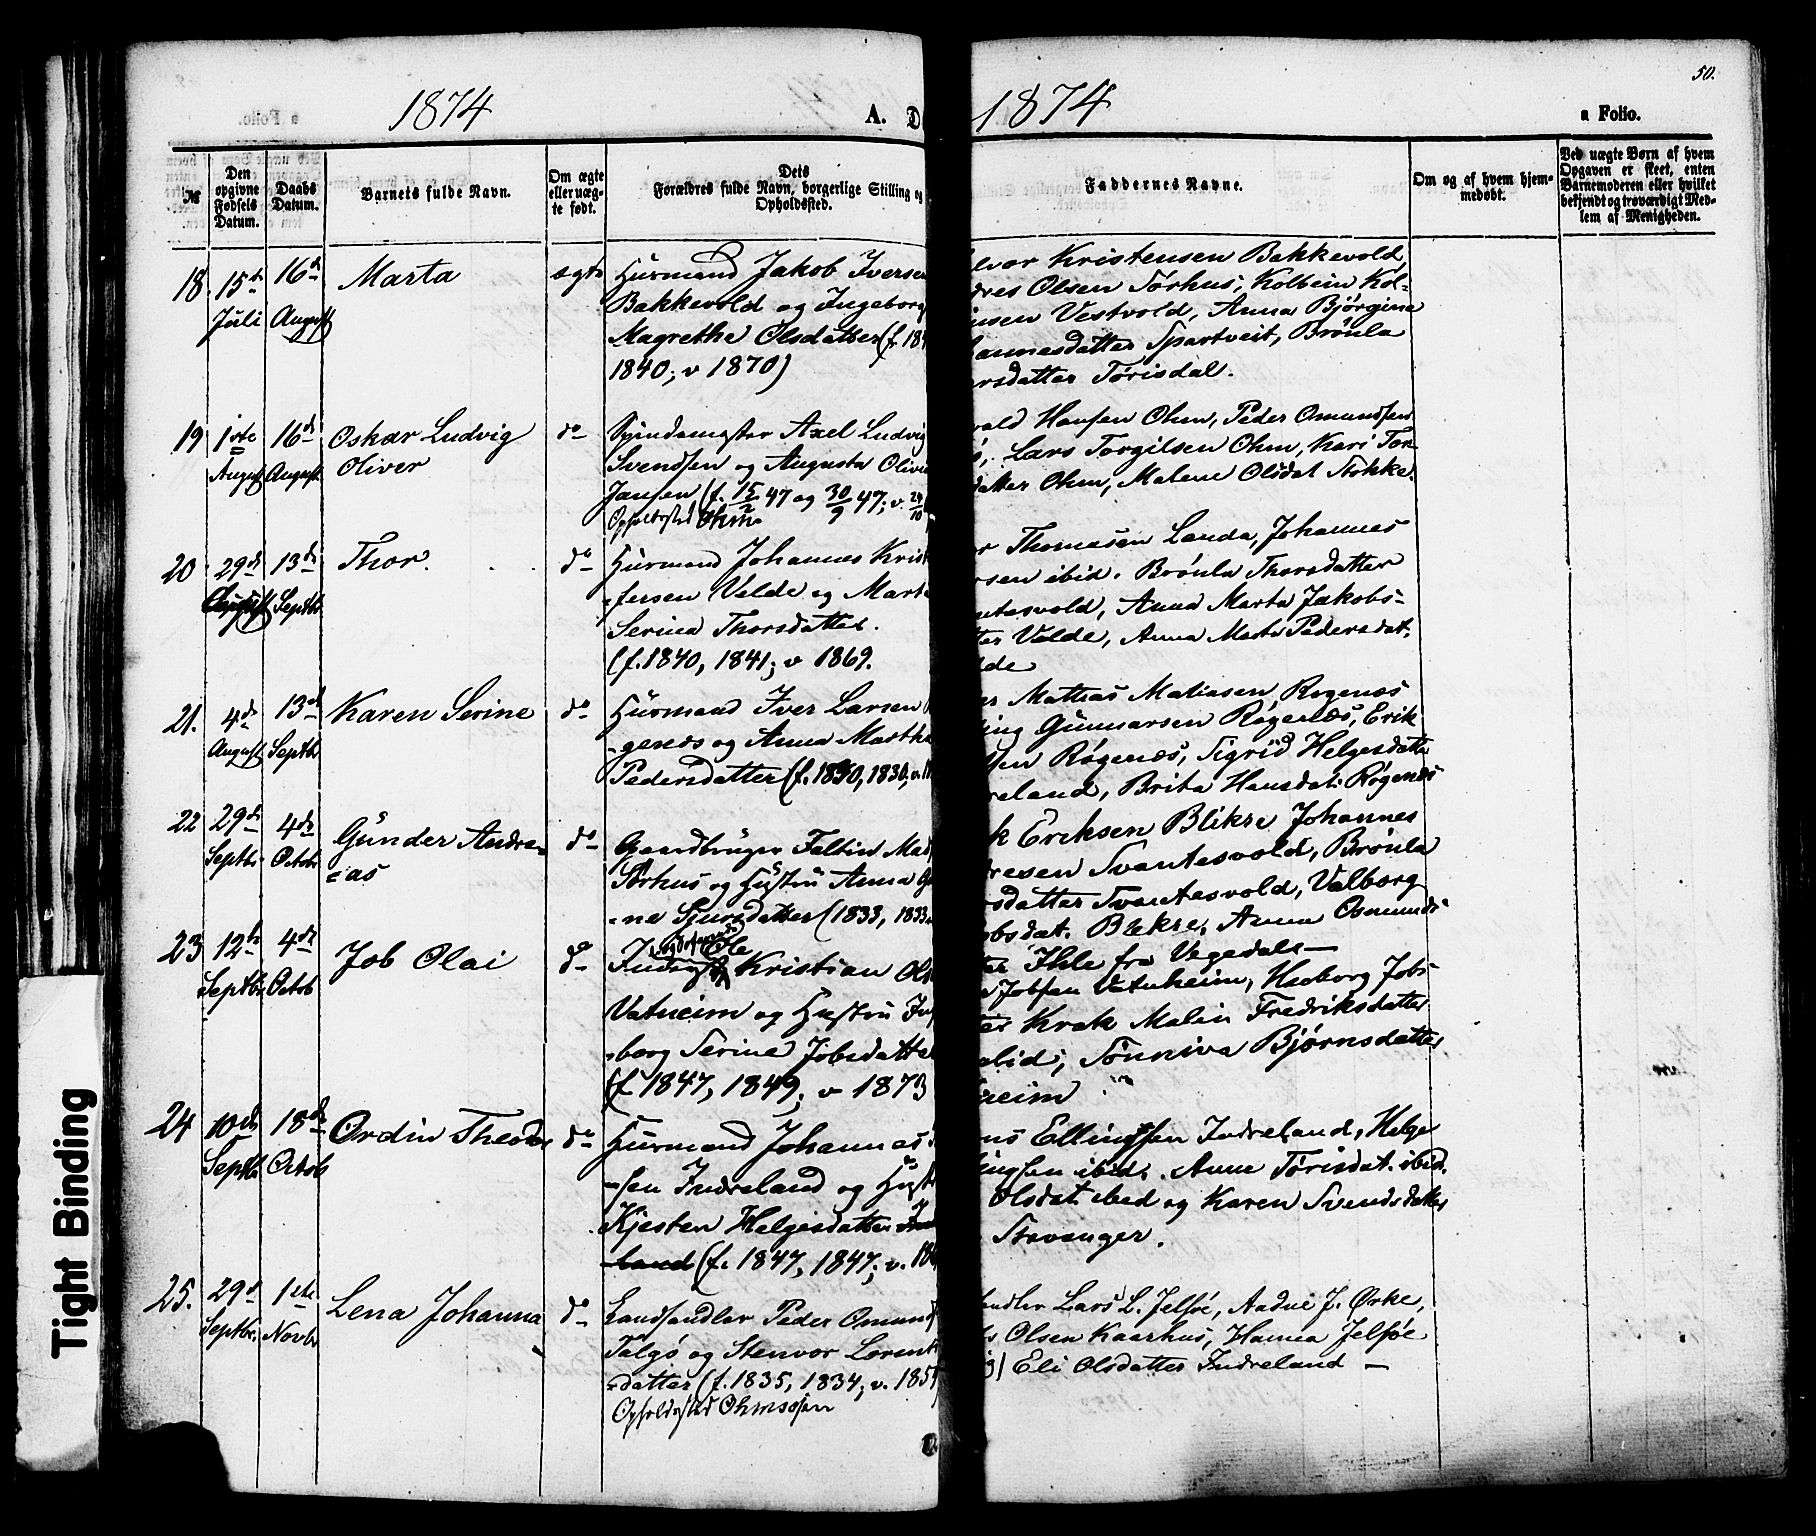 50.
1874
A. D
1874
a Folio.
№
Den opgivne Fødsels Datum.
Daabs Datum.
Barnets fulde Navn.
Om ægte eller uægte født.
Dets
Forældres fulde Navn, borgerlige Stilling og
Opholdssted.
Faddernes Navne.
Om og af hvem hjemmedøbt.
Ved uægte Børn af hvem Opgaven er skeet, enten Barnemoderen eller hvilket bekjendt og troværdigt Medlem af Menigheden.
18 15de Juli 16de August Marta ægte
Huusmand Jakob Iversen
Bakkevold og Ingeborg
Magrethe Olsdatter (f. 18
1840; v 1870)
Kristensen Bakkevold,
dres Olsen Tørhus; Kolbein Kol-
insen Vestvold, Anna Bjørgine
hannesdatter Spartveit, Brønla
arsdatter Tørisdal.
19 1ste August 16de August Oskar Ludvig
Oliver do
Spindemester Axel Ludvig
Svendsen og Augusta Olivi
Jansen (f. 15/2 47 og 30/9 47; v. 24/10
Opholdssted Ohm
rald Hansen Ohm, Peder Omundsen
Lars Torgilsen Ohm, Kari Tor-
datter Ohm, Malene Olsdat Stokke.
20 29de August 13de Septbr Thor. do
Huusmand Johannes Krist
-fersen Velde og Mart
Serina Thorsdatter.
(f. 1840, 1841; v 1869.
Thomasen Landa, Johannes
rsen ibid. Brønla Thorsdatter
ntesvold, Anna Marta Jakobs-
tter Velde, Anna Marta Pedersdat.
lde
21. 4de August 13de Septbr Karen Serine do
Huusmand Iver Larsen
-genes og Anna Martha
Pedersdatter (f. 1830, 1830, v. 1
Mathias Matiasen, Røgenæs
ling Gunnarsen Røgenæs, Erik
sen Røgenæs, Sigrid Helgesdatter
reland, Brita Hansdat. Røgenæs
22 29de Septbr 4de Octbr Gunder Andre-
=as do
Gaardbruger Faltin Mad
Tørhus og Hustru Anna G
-ne Sjursdatter (1833, 1833
k Eriksen Blikre Johannes
resen Svantesvold, Brønla
rsdatter Svantesvold, Valborg
obsdat. Blikre, Anna Osmunds
ter Ihle fra Vegedals—
23 12te Septbr 4de Octob Job Olai do
Ole
Kristian Ols
Vatneim og Hustru In
-borg Serine Jobsdatte
(f 1847, 1849, v 1873
Jobsen Vatnheim, Herborg Jobs
ter Krak Malin Fredriksdatter
alid; Sønniva Bjørnsdatter
neim
24 10de Septbr 18de Octob Ordin Theodor do
Huusmand Johannes
-sen Indreland og Hust
Kjesten Helgesdatter
land (f. 1847, 1847; v. 18
ns Ellingsen Indreland, Helge
lingsen ibid. Anne Tørisdat. ibid.
Olsdat ibid og Karen Svendsdatter
Stavanger.
25. 29de Septbr. 1ste Novbr Lena Johanna do
Landhandler Peder Omund
Talgø og Stenvor Lorent
-datter (f. 1835, 1834; v. 185
Opholdssted Ohmsosen
handler Lars L. Jelsøe, Aadne J. Ørke,
Olsen Kaarhus, Hanna Jelsøe
Eli Olsdatter Indreland —
Tight Binding